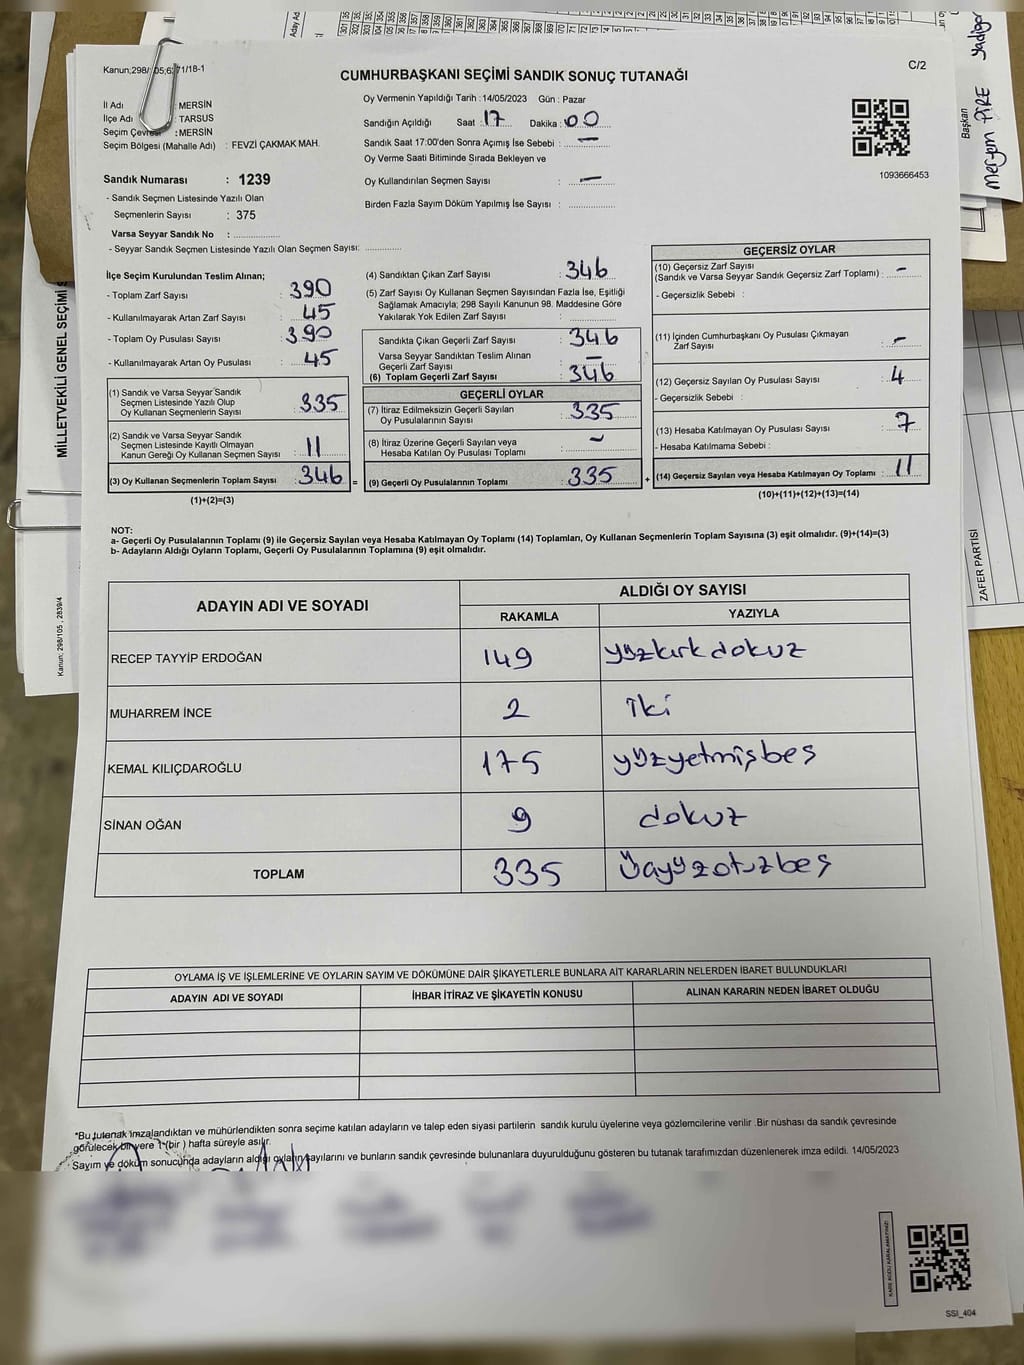 Kanun;298/105;6271/18-1
C/2
CUMHURBAŞKANI SEÇİMİ SANDIK SONUÇ TUTANAĞI
İl Adı : MERSİN
İlçe Adı : TARSUS
Seçim Çevresi : MERSİN
Seçim Bölgesi (Mahalle Adı) : FEVZİ ÇAKMAK MAH.
Sandık Numarası : 1239
- Sandık Seçmen Listesinde Yazılı Olan
Seçmenlerin Sayısı : 375
Varsa Seyyar Sandık No :
- Seyyar Sandık Seçmen Listesinde Yazılı Olan Seçmen Sayısı:
Oy Vermenin Yapıldığı Tarih : 14/05/2023 Gün : Pazar
Sandığın Açıldığı Saat : 17 Dakika : 00
Sandık Saat 17:00'den Sonra Açımış İse Sebebi : -
Oy Verme Saati Bitiminde Sırada Bekleyen ve
Oy Kullandırılan Seçmen Sayısı : -
Birden Fazla Sayım Döküm Yapılmış İse Sayısı :
1093666453
Başkan
Meryem PİRE
yadigar
İlçe Seçim Kurulundan Teslim Alınan;
- Toplam Zarf Sayısı : 390
- Kullanılmayarak Artan Zarf Sayısı : 45
- Toplam Oy Pusulası Sayısı : 390
- Kullanılmayarak Artan Oy Pusulası : 45
(1) Sandık ve Varsa Seyyar Sandık
Seçmen Listesinde Yazılı Olup
Oy Kullanan Seçmenlerin Sayısı : 335
(2) Sandık ve Varsa Seyyar Sandık
Seçmen Listesinde Kayıtlı Olmayan
Kanun Gereği Oy Kullanan Seçmen Sayısı : 11
(3) Oy Kullanan Seçmenlerin Toplam Sayısı : 346 =
(1)+(2)=(3)
(4) Sandıktan Çıkan Zarf Sayısı : 346
(5) Zarf Sayısı Oy Kullanan Seçmen Sayısından Fazla İse, Eşitliği
Sağlamak Amacıyla; 298 Sayılı Kanunun 98. Maddesine Göre
Yakılarak Yok Edilen Zarf Sayısı :
Sandıkta Çıkan Geçerli Zarf Sayısı : 346
Varsa Seyyar Sandıktan Teslim Alınan
Geçerli Zarf Sayısı : -
(6) Toplam Geçerli Zarf Sayısı : 346
GEÇERLİ OYLAR
(7) İtiraz Edilmeksizin Geçerli Sayılan
Oy Pusulalarının Sayısı : 335
(8) İtiraz Üzerine Geçerli Sayılan veya
Hesaba Katılan Oy Pusulası Toplamı : -
(9) Geçerli Oy Pusulalarının Toplamı : 335 +
GEÇERSİZ OYLAR
(10) Geçersiz Zarf Sayısı
(Sandık ve Varsa Seyyar Sandık Geçersiz Zarf Toplamı) : -
- Geçersizlik Sebebi :
(11) İçinden Cumhurbaşkanı Oy Pusulası Çıkmayan
Zarf Sayısı : -
(12) Geçersiz Sayılan Oy Pusulası Sayısı : 4
- Geçersizlik Sebebi :
(13) Hesaba Katılmayan Oy Pusulası Sayısı : 7
- Hesaba Katılmama Sebebi :
(14) Geçersiz Sayılan veya Hesaba Katılmayan Oy Toplamı : 11
(10)+(11)+(12)+(13)=(14)
NOT:
a- Geçerli Oy Pusulalarının Toplamı (9) ile Geçersiz Sayılan veya Hesaba Katılmayan Oy Toplamı (14) Toplamları, Oy Kullanan Seçmenlerin Toplam Sayısına (3) eşit olmalıdır. (9)+(14)=(3)
b- Adayların Aldığı Oyların Toplamı, Geçerli Oy Pusulalarının Toplamına (9) eşit olmalıdır.
ADAYIN ADI VE SOYADI
ALDIĞI OY SAYISI
RAKAMLA YAZIYLA
RECEP TAYYİP ERDOĞAN 149 yüzkırkdokuz
MUHARREM İNCE 2 iki
KEMAL KILIÇDAROĞLU 175 yüzyetmişbeş
SİNAN OĞAN 9 dokuz
TOPLAM 335 Üçyüzotuzbeş
OYLAMA İŞ VE İŞLEMLERİNE VE OYLARIN SAYIM VE DÖKÜMÜNE DAİR ŞİKAYETLERLE BUNLARA AİT KARARLARIN NELERDEN İBARET BULUNDUKLARI
ADAYIN ADI VE SOYADI İHBAR İTİRAZ VE ŞİKAYETİN KONUSU ALINAN KARARIN NEDEN İBARET OLDUĞU
*Bu tutanak imzalandıktan ve mühürlendikten sonra seçime katılan adayların ve talep eden siyasi partilerin sandık kurulu üyelerine veya gözlemcilerine verilir. Bir nüshası da sandık çevresinde
görülecek bir yere 1 (bir) hafta süreyle asılır.
Sayım ve döküm sonucunda adayların aldığı oyların sayılarını ve bunların sandık çevresinde bulunanlara duyurulduğunu gösteren bu tutanak tarafımızdan düzenlenerek imza edildi. 14/05/2023
KARE KODU KARALAMAYINIZ!
SSI_404
MİLLETVEKİLİ GENEL SEÇİMİ S
Kanun; 298/105 , 2839/4
ZAFER PARTİSİ